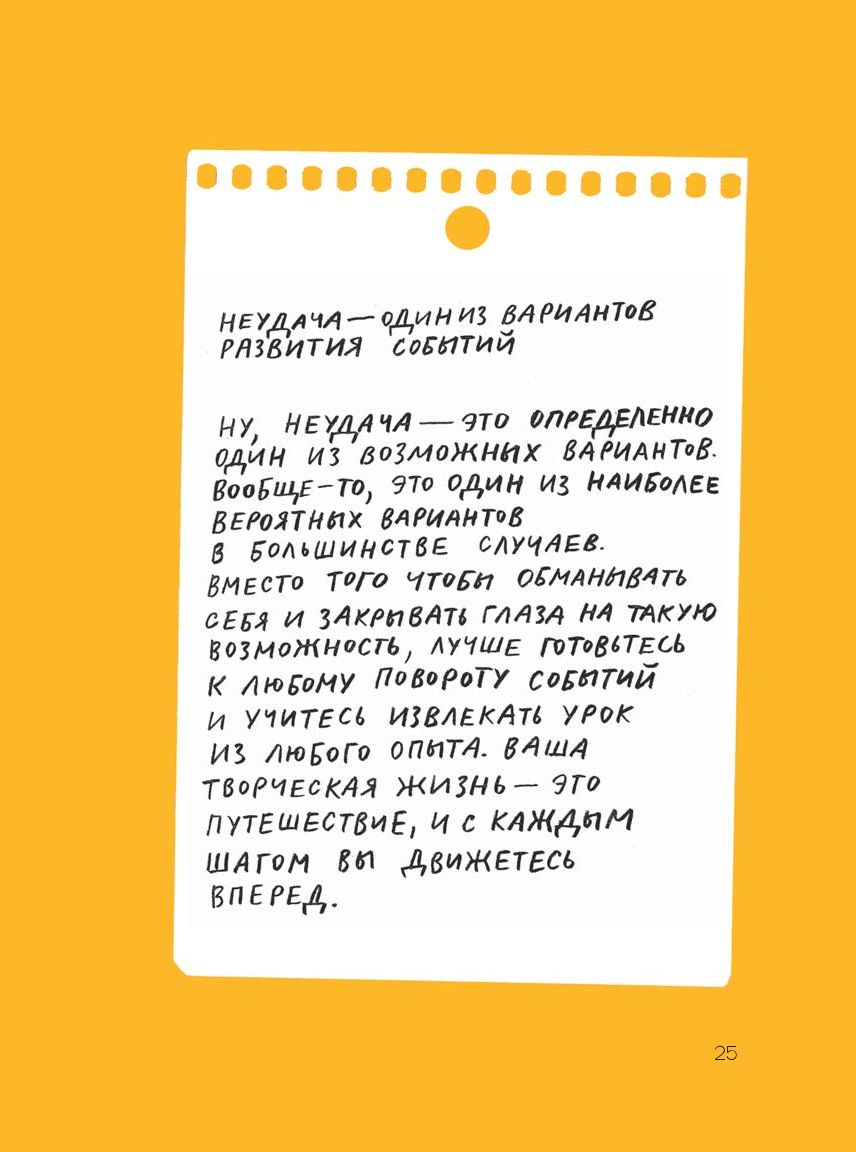 НЕУДАЧА — ОДИН ИЗ ВАРИАНТОВ
РАЗВИТИЯ СОБЫТИЙ
НУ, НЕУДАЧА — ЭТО ОПРЕДЕЛЕННО
ОДИН ИЗ ВОЗМОЖНЫХ ВАРИАНТОВ.
ВООБЩЕ-ТО, ЭТО ОДИН ИЗ НАИБОЛЕЕ
ВЕРОЯТНЫХ ВАРИАНТОВ
В БОЛЬШИНСТВЕ СЛУЧАЕВ.
ВМЕСТО ТОГО ЧТОБЫ ОБМАНЫВАТЬ
СЕБЯ И ЗАКРЫВАТЬ ГЛАЗА НА ТАКУЮ
ВОЗМОЖНОСТЬ, ЛУЧШЕ ГОТОВЬТЕСЬ
К ЛЮБОМУ ПОВОРОТУ СОБЫТИЙ
И УЧИТЕСЬ ИЗВЛЕКАТЬ УРОК
ИЗ ЛЮБОГО ОПЫТА. ВАША
ТВОРЧЕСКАЯ ЖИЗНЬ — ЭТО
ПУТЕШЕСТВИЕ, И С КАЖДЫМ
ШАГОМ ВЫ ДВИЖЕТЕСЬ
ВПЕРЕД.
25